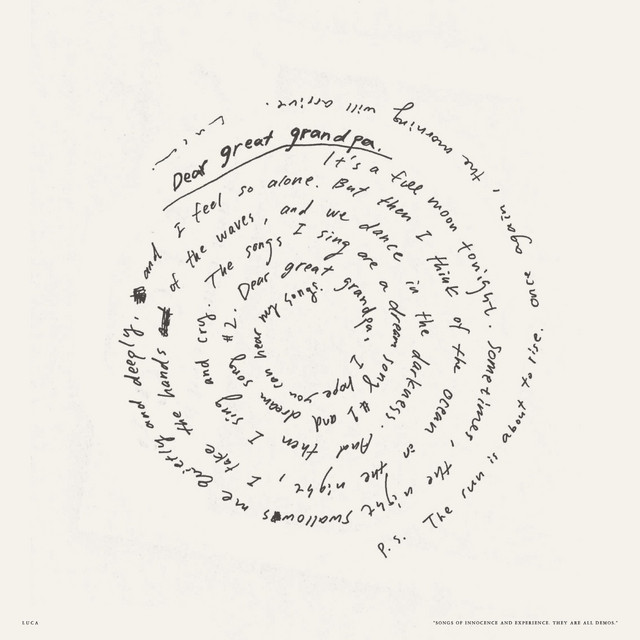 Dear great grandpa.
It's a full moon tonight. Sometimes, the night swallows me quietly and deeply, and I feel so alone. But then I think of the ocean in the night, I take the hands of the waves, and we dance in the darkness. And then I sing and cry. The songs I sing are a dream song #1 and dream song #2. Dear great grandpa, I hope you can hear my songs.
P.S. The sun is about to rise. once again, the morning will arrive.
LUCA
"SONGS OF INNOCENCE AND EXPERIENCE. THEY ARE ALL DEMOS."